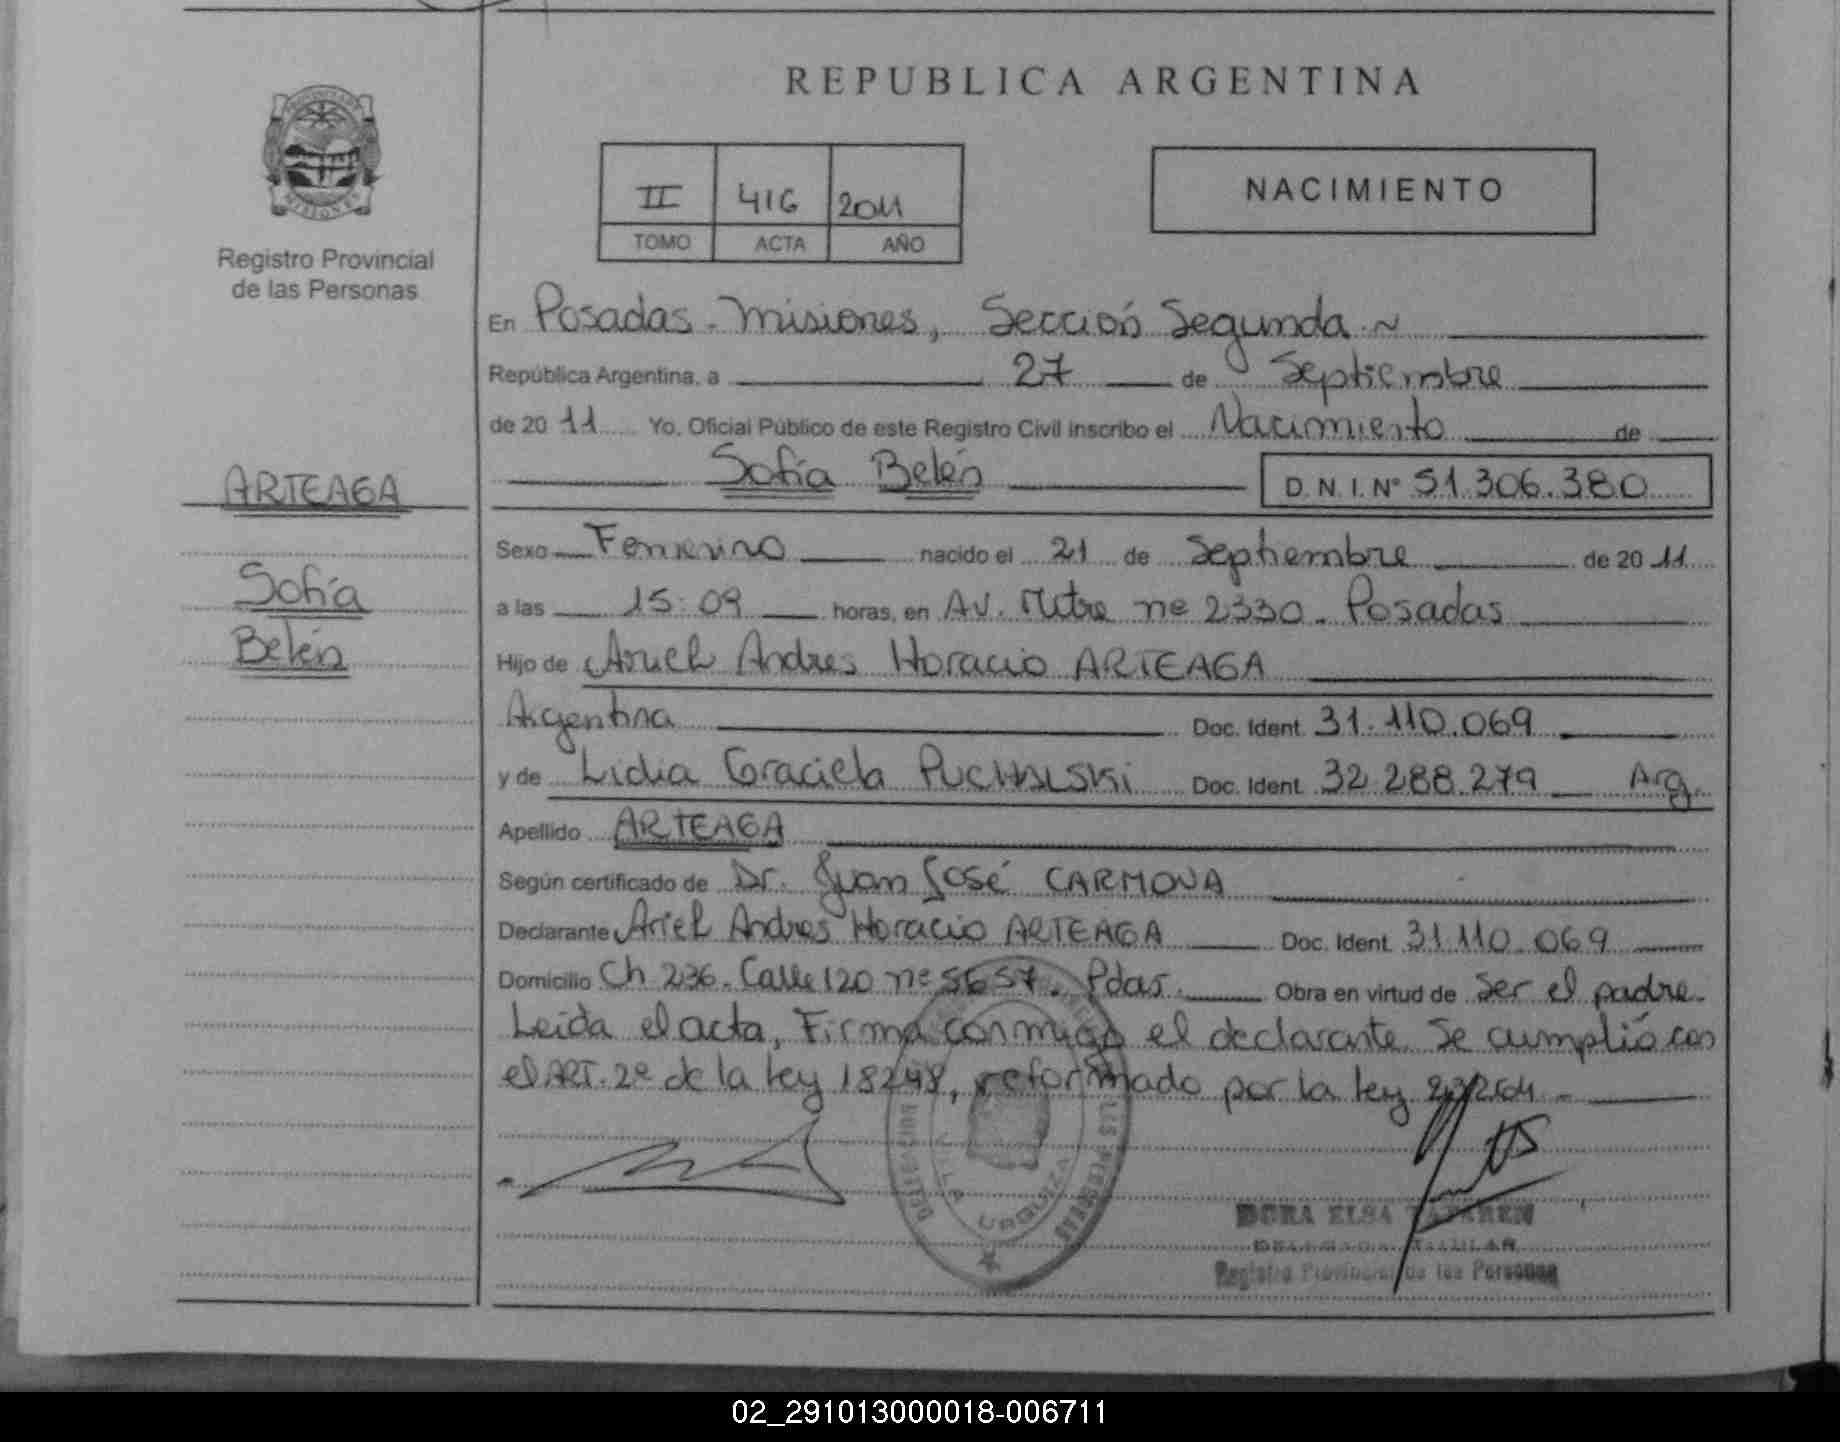 REPUBLICA ARGENTINA
PROVINCIA DE
MISIONES
Registro Provincial
de las Personas
II 416 2011
TOMO ACTA AÑO
NACIMIENTO
En Posadas - Misiones, Sección Segunda ~
República Argentina, a 27 de Septiembre
de 2011 Yo, Oficial Público de este Registro Civil inscribo el Nacimiento de
Sofía Belén D.N.I. Nº 51.306.380
ARTEAGA
Sofía
Belén
Sexo Femenino nacido el 21 de Septiembre de 2011
a las 15:09 horas, en Av. Mitre nº 2330 - Posadas
Hijo de Ariel Andres Horacio ARTEAGA
Argentina Doc. Ident. 31.110.069
y de Lidia Graciela Doc. Ident. 32.288.279 Arg.
Apellido ARTEAGA
Según certificado de Dr. Juan José CARMONA
Declarante Ariel Andres Horacio ARTEAGA Doc. Ident. 31.110.069
Domicilio Ch 236 - Calle 120 nº 5657 - Pdas. Obra en virtud de ser el padre.
Leída el acta, Firma conmigo el declarante. Se cumplió con
el ART. 2º de la ley 18248, reformado por la ley 23264 -
VILLA URQUIZA
LAS PERSONAS
ELSA
Registro Provincial de las Personas
02_291013000018-006711